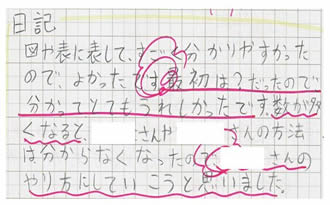 日記
図や表に表して、すごく分かりやすかった
ので、よかったです。最初は?だったので
分かってとてもうれしかったです。数が多
くなると、 さんや さんの方法
は分からなくなったので さんの
やり方にしていこうと思いました。